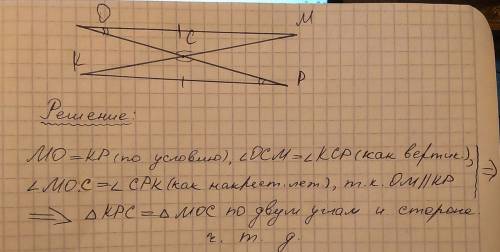 O
M
C
K
P
Решение:
MO = KP (по условию), ∠OCM = ∠KCP (как вертик),
∠MOC = ∠CPK (как накрест. леж), т.к. OM || KP
⇒ △KPC = △MOC по двум углам и стороне
ч. т. д.